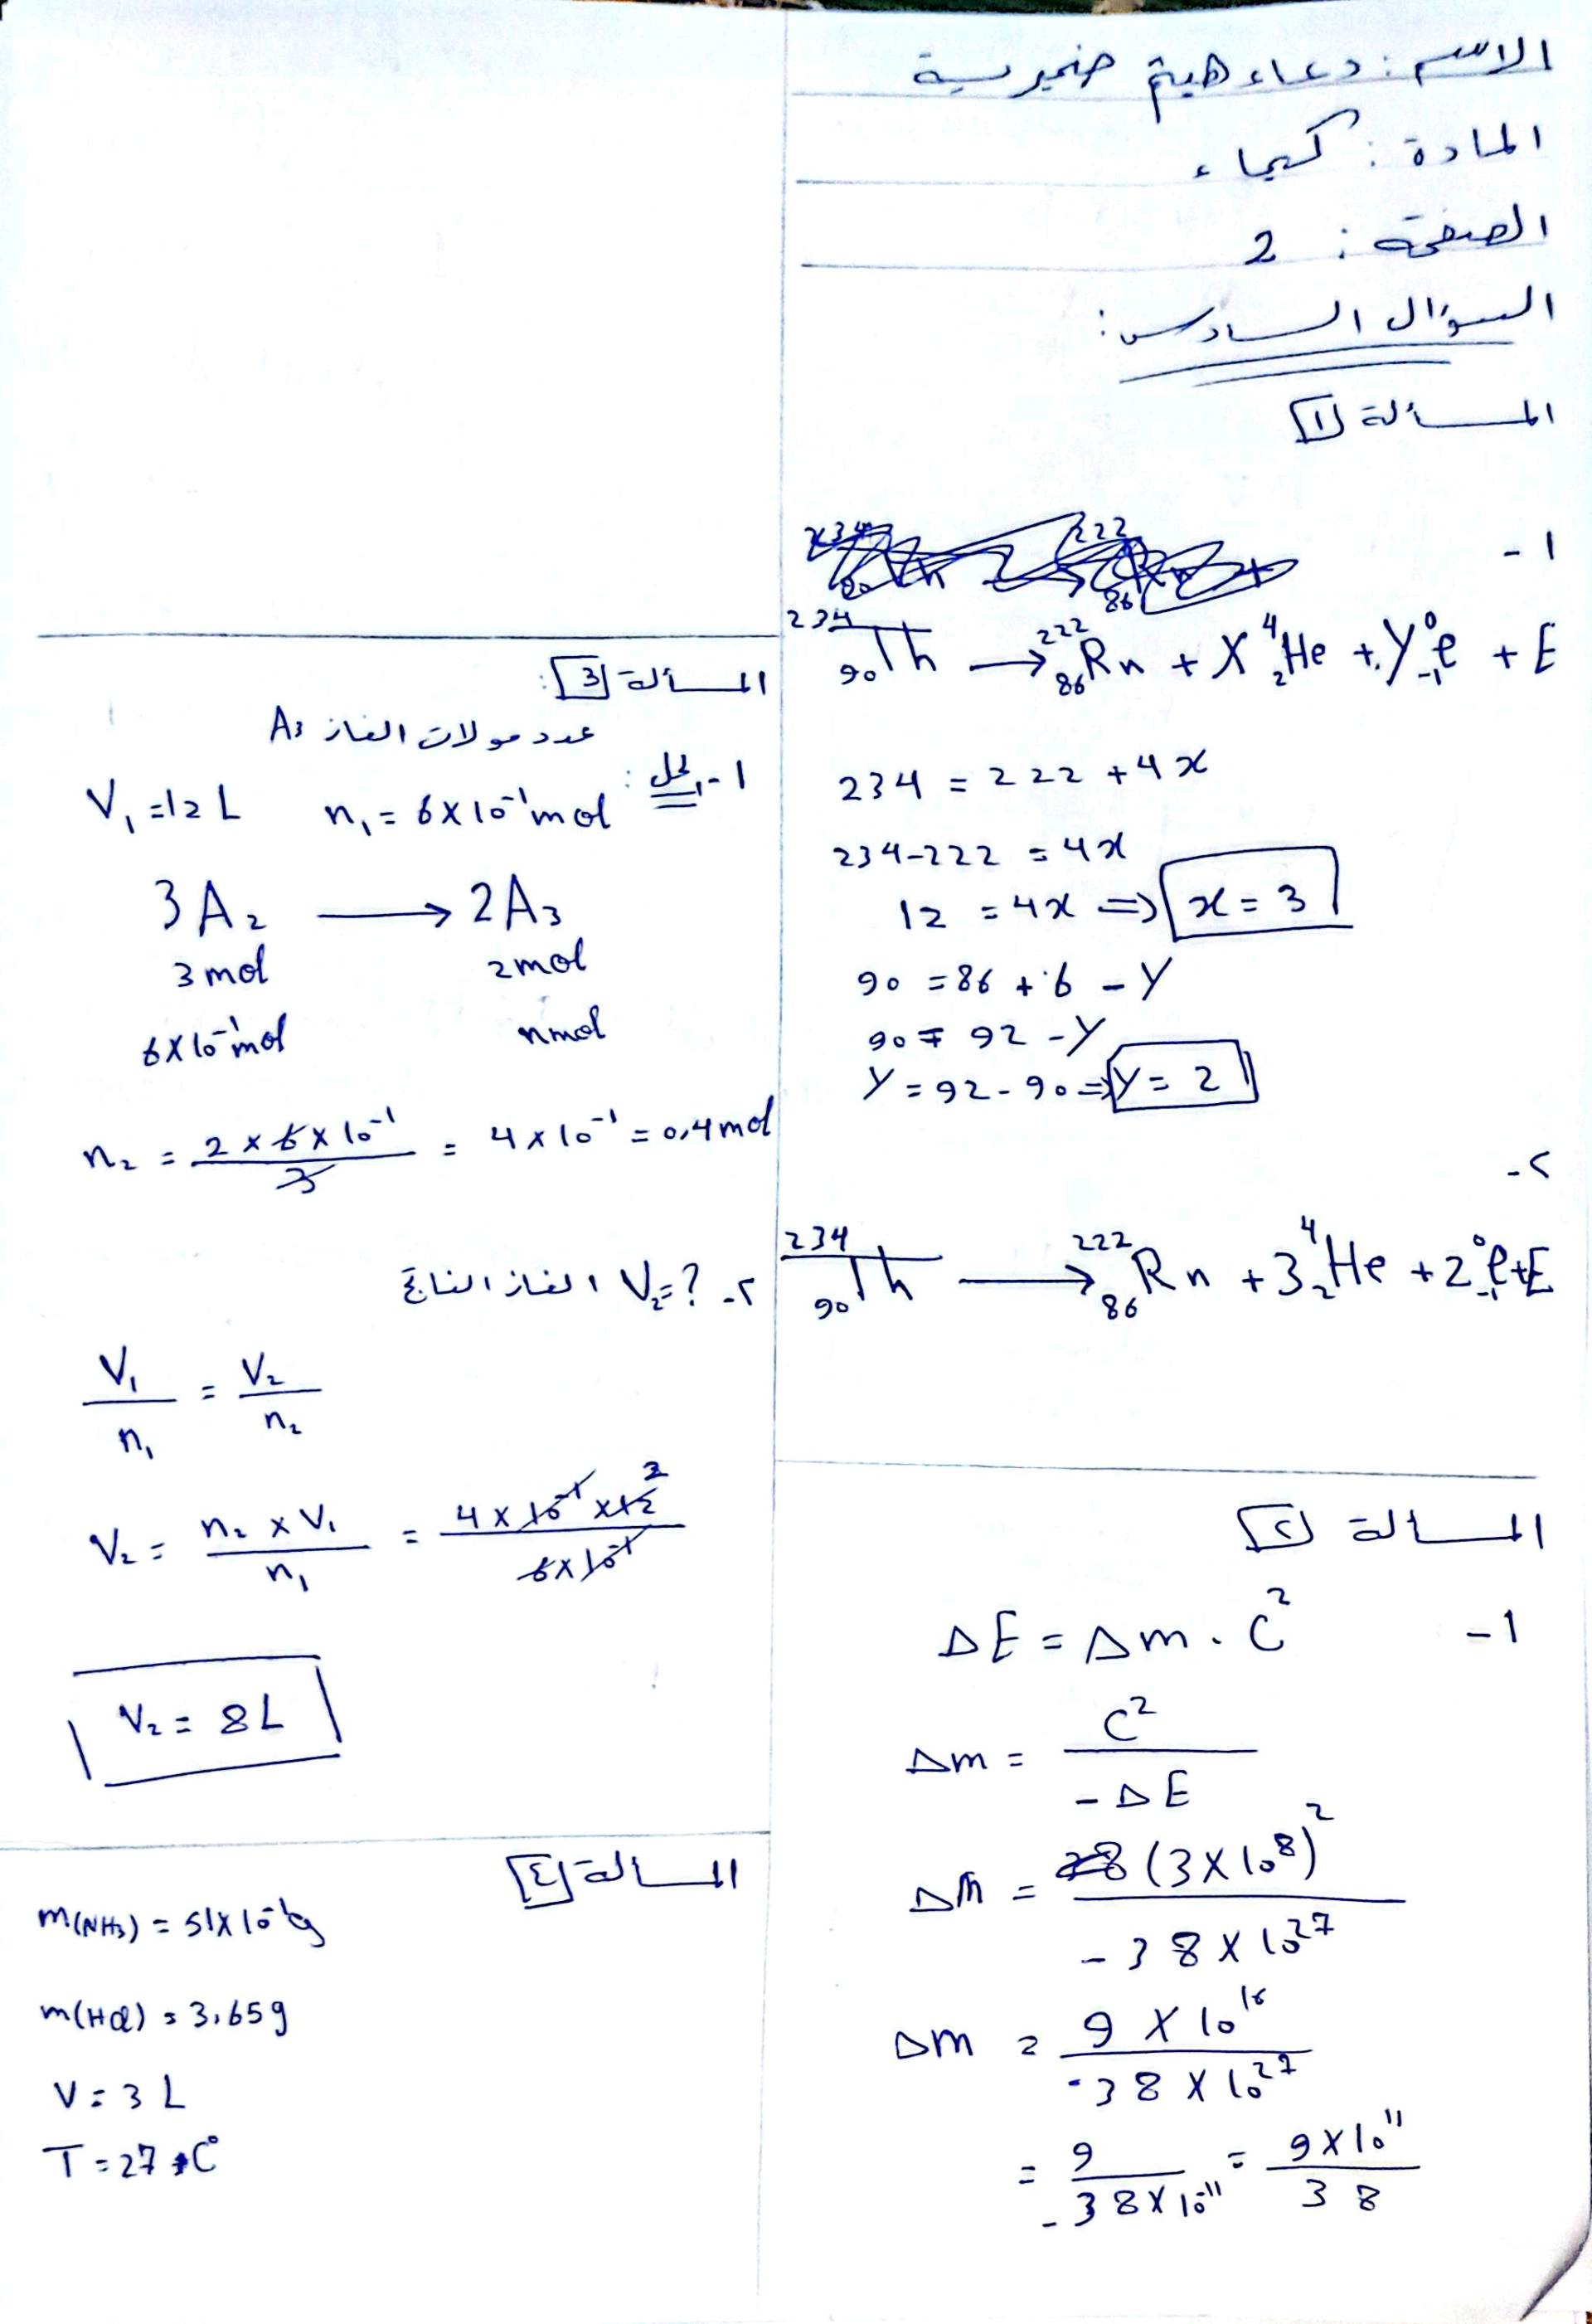 الاسم: دعاء هيثم
المادة: كيمياء
الصفحة: 2
السؤال السادس:
المسألة [1]
1-
²³⁴₉₀Th → ²²²₈₆Rn + X ⁴₂He + Y ⁰₋₁e + E
234 = 222 + 4x
234-222 = 4x
12 = 4x ⇒ x = 3
90 = 86 + 6 - Y
90 = 92 - Y
Y = 92-90 ⇒ Y = 2
٢-
²³⁴₉₀Th → ²²²₈₆Rn + 3 ⁴₂He + 2 ⁰₋₁e + E
المسألة [٢]
1-
ΔE = Δm . C²
Δm = C² / -ΔE
Δm = (3×10⁸)² / -38×10²⁷
Δm = 9×10¹⁶ / -38×10²⁷
= 9 / -38×10⁻¹¹ = 9×10¹¹ / 38
المسألة [3]:
عدد مولات الغاز A₃
1- الحل:
V₁ = 12 L n₁ = 6×10⁻¹ mol
3A₂ → 2A₃
3 mol 2 mol
6×10⁻¹ mol n mol
n₂ = 2×6×10⁻¹ / 3 = 4×10⁻¹ = 0,4 mol
٢- V₂=? الغاز الناتج
V₁ / n₁ = V₂ / n₂
V₂ = n₂ × V₁ / n₁ = 4×10⁻¹×12 / 6×10⁻¹
2
V₂ = 8 L
المسألة [٤]
m(NH₃) = 51×10⁻¹ g
m(HCl) = 3,65 g
V = 3 L
T = 27 C°